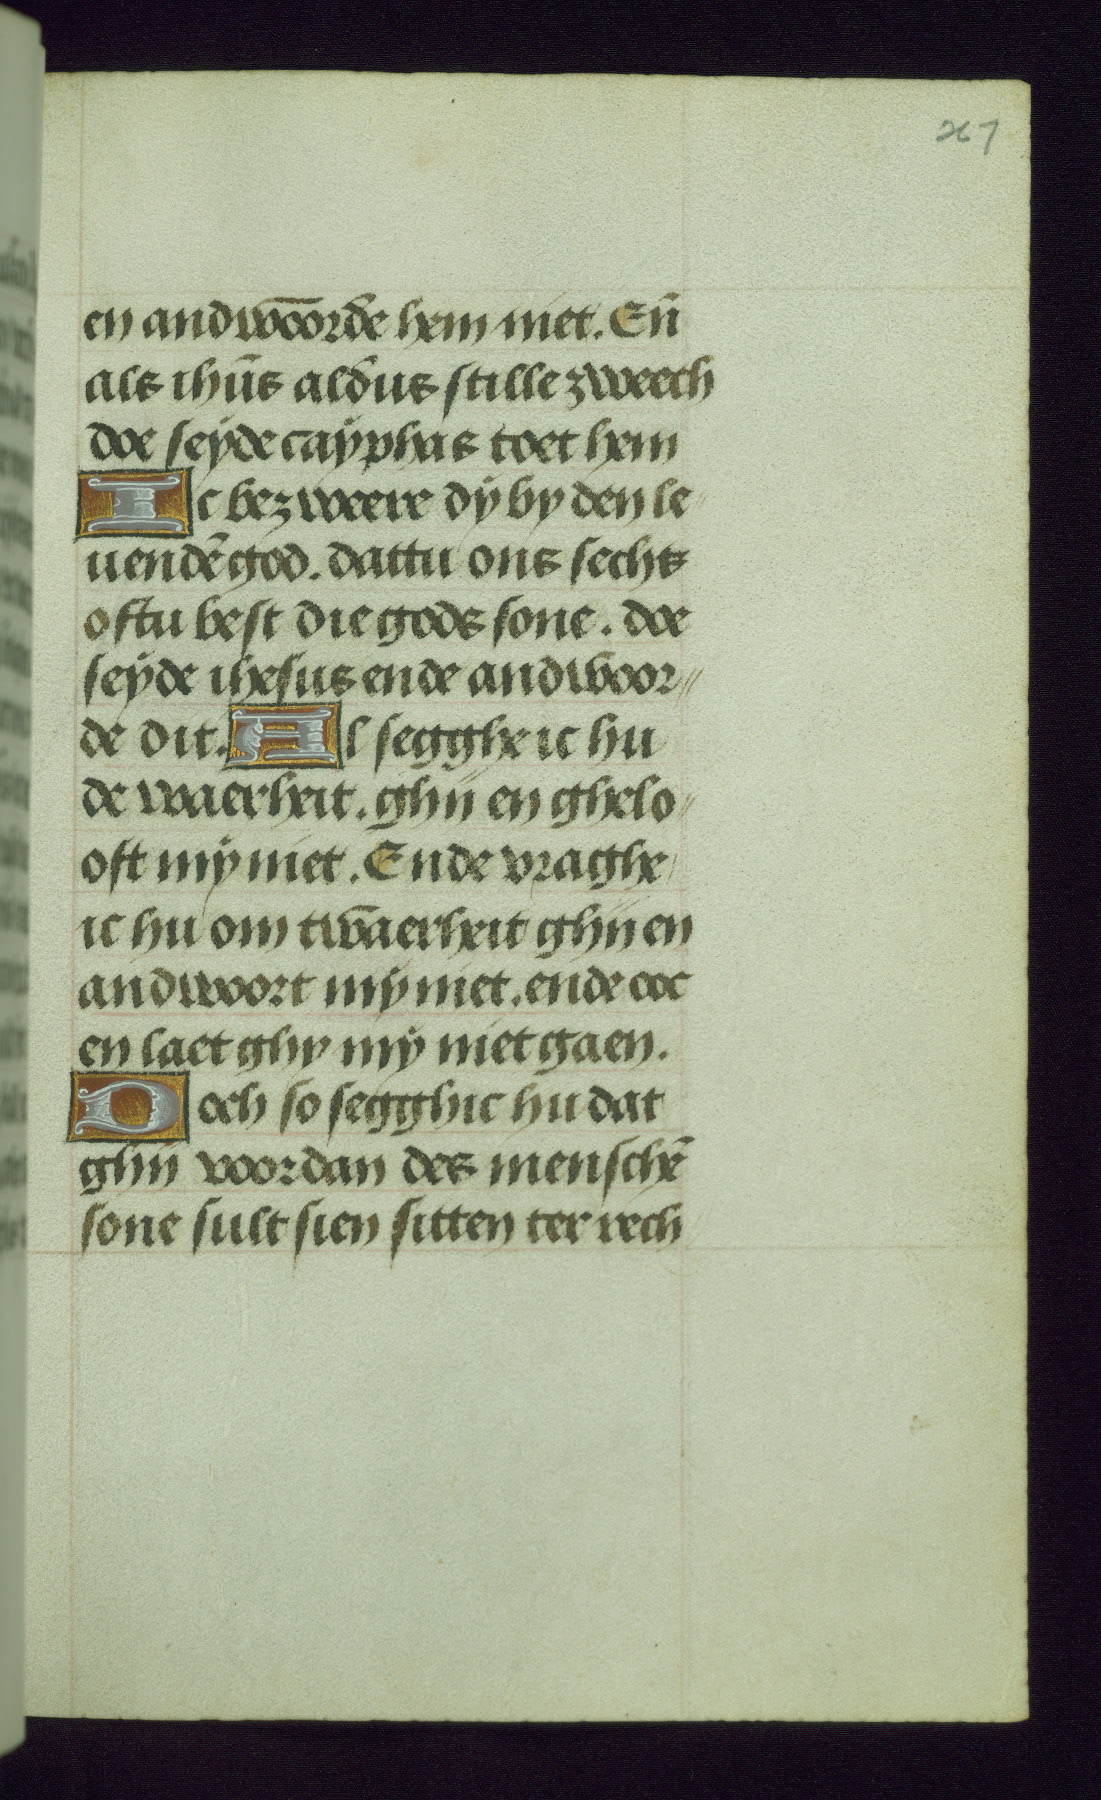 267
en andwoorde hem niet. Eñ
als ihūs aldus stille zweech
doe seÿde caÿphas toet hem
Ic bezweere dÿ by den le
uendē god. dattu ons sechs
oftu best die gods sone. doe
seÿde ihesus ende andwoor〃
de dit. Al segghe ic hu
de waerheit. ghÿ en ghelo〃
oft mÿ niet. Ende vraghe
ic hu om twaerheit ghÿ en
andwoort mÿ niet. ende ooc
en laet ghy mÿ niet gaen.
Doch so segghic hu dat
ghÿ voordan des menschē
sone sult sien sitten ter rech